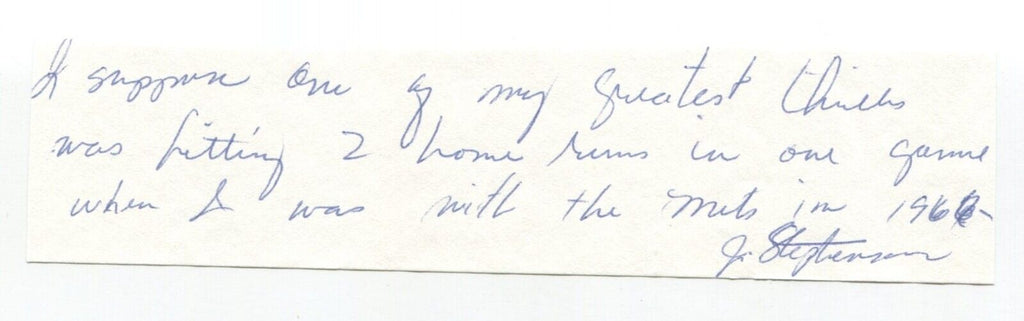 I suppose one of my greatest thrills
was hitting 2 home runs in one game
when I was with the Mets in 1966
J. Stephenson